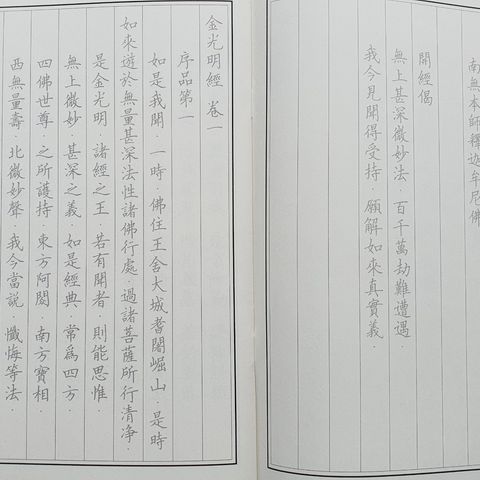 南無本師釋迦牟尼佛
開經偈
無上甚深微妙法．百千萬劫難遭遇．
我今見聞得受持．願解如來真實義．
金光明經　卷一
序品第一
如是我聞．一時．佛住王舍大城耆闍崛山．是時
如來遊於無量甚深法性諸佛行處．過諸菩薩所行清淨．
是金光明．諸經之王．若有聞者．則能思惟．
無上微妙．甚深之義．如是經典．常為四方．
四佛世尊．之所護持．東方阿閦．南方寶相．
西無量壽．北微妙聲．我今當說．懺悔等法．